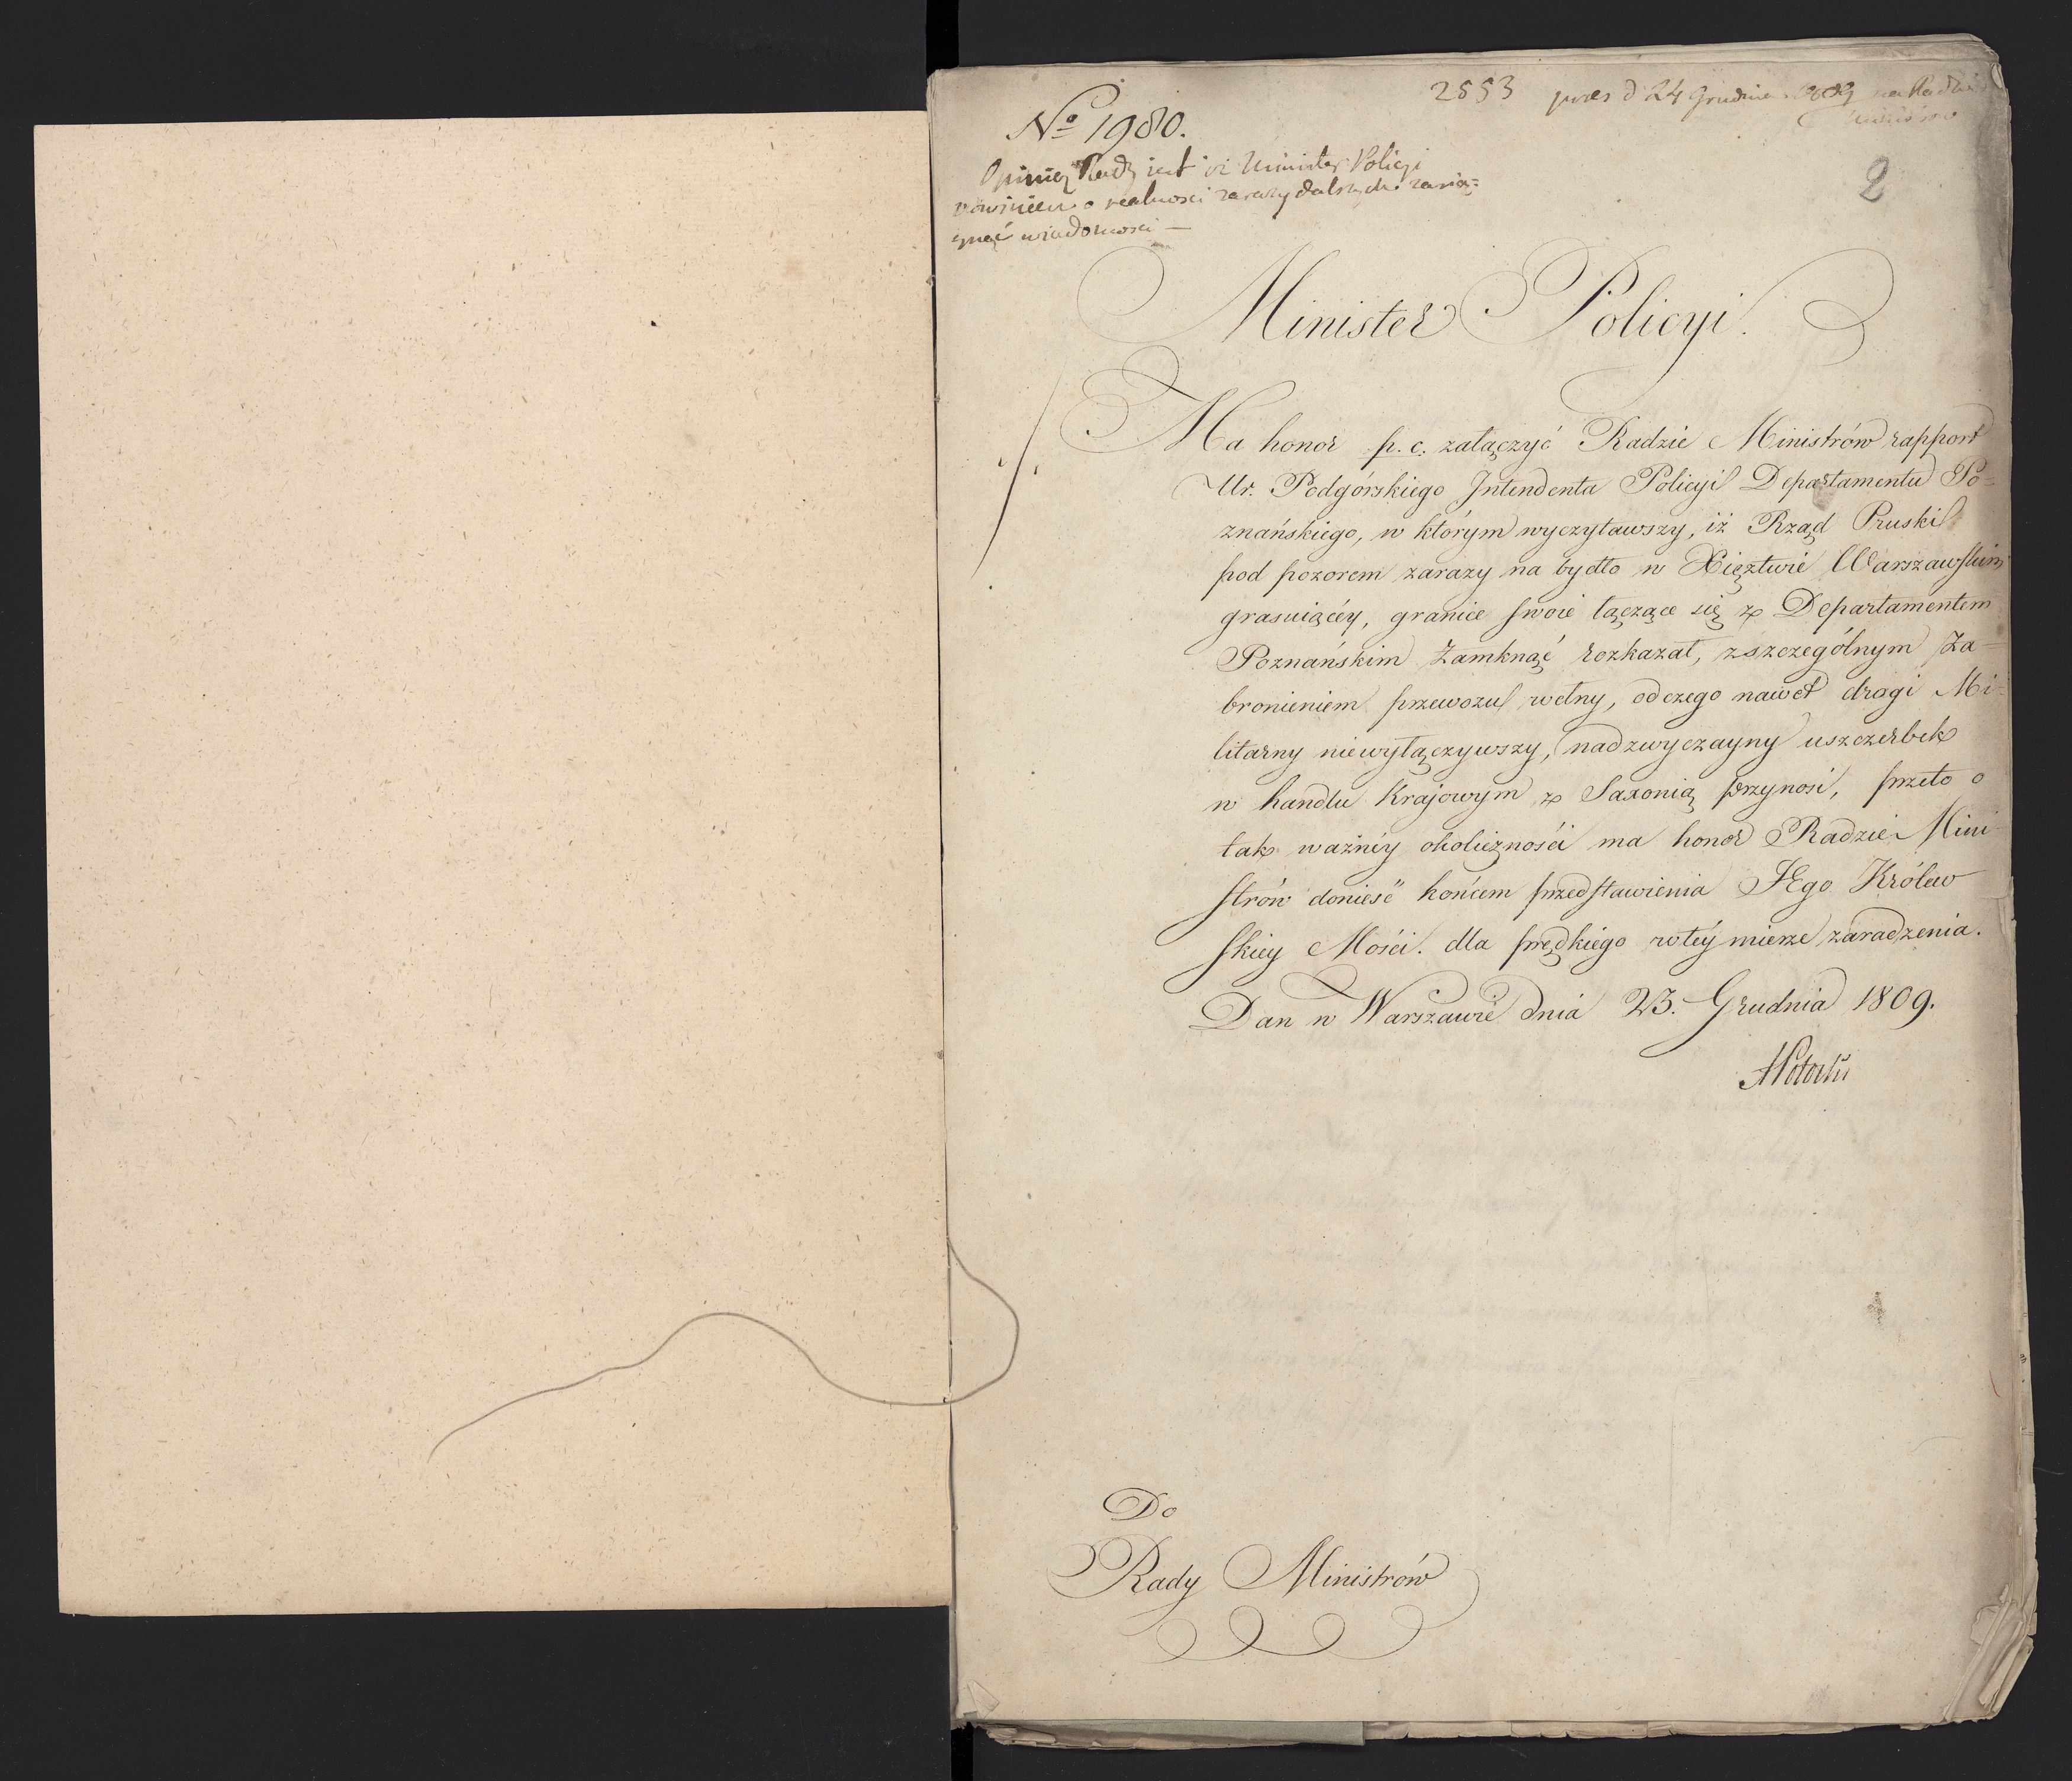 2553 pres d 24 Grudnia 1809 na Radzie
Ministrów
№ 1980.
2
Opinią Rady jest iż Minister Policyi
powinien o realności zarazy dalszych zasią=
gnąć wiadomości —
Minister Policyi.
Ma honor p. c. załączyć Radzie Ministrów rapport
Ur. Podgórskiego Jntendenta Policyi Departamentu Po=
znańskiego, w którym wyczytawszy, iż Rząd Pruski
pod pozorem zarazy na bydło w Xięztwie Warszawskim
grasuiącéy, granice swoie łączące się z Departamentem
Poznańskim zamknąć rozkazał, zszczególnym Za=
bronieniem przewozu wełny, odczego nawet drogi Mi=
litarny niewyłączywszy, nadzwyczayny uszczerbek
w handlu Krajowym z Saxonią przynosi, przeto o
tak ważnéy okoliczności ma honor Radzie Mini
strów donieść końcem przedstawienia JEgo Królew
skiey Mości. dla prędkiego wtéy mierze zaradzenia.
Dan w Warszawie dnia 23. Grudnia 1809.
APotocki
Do
Rady Ministrów